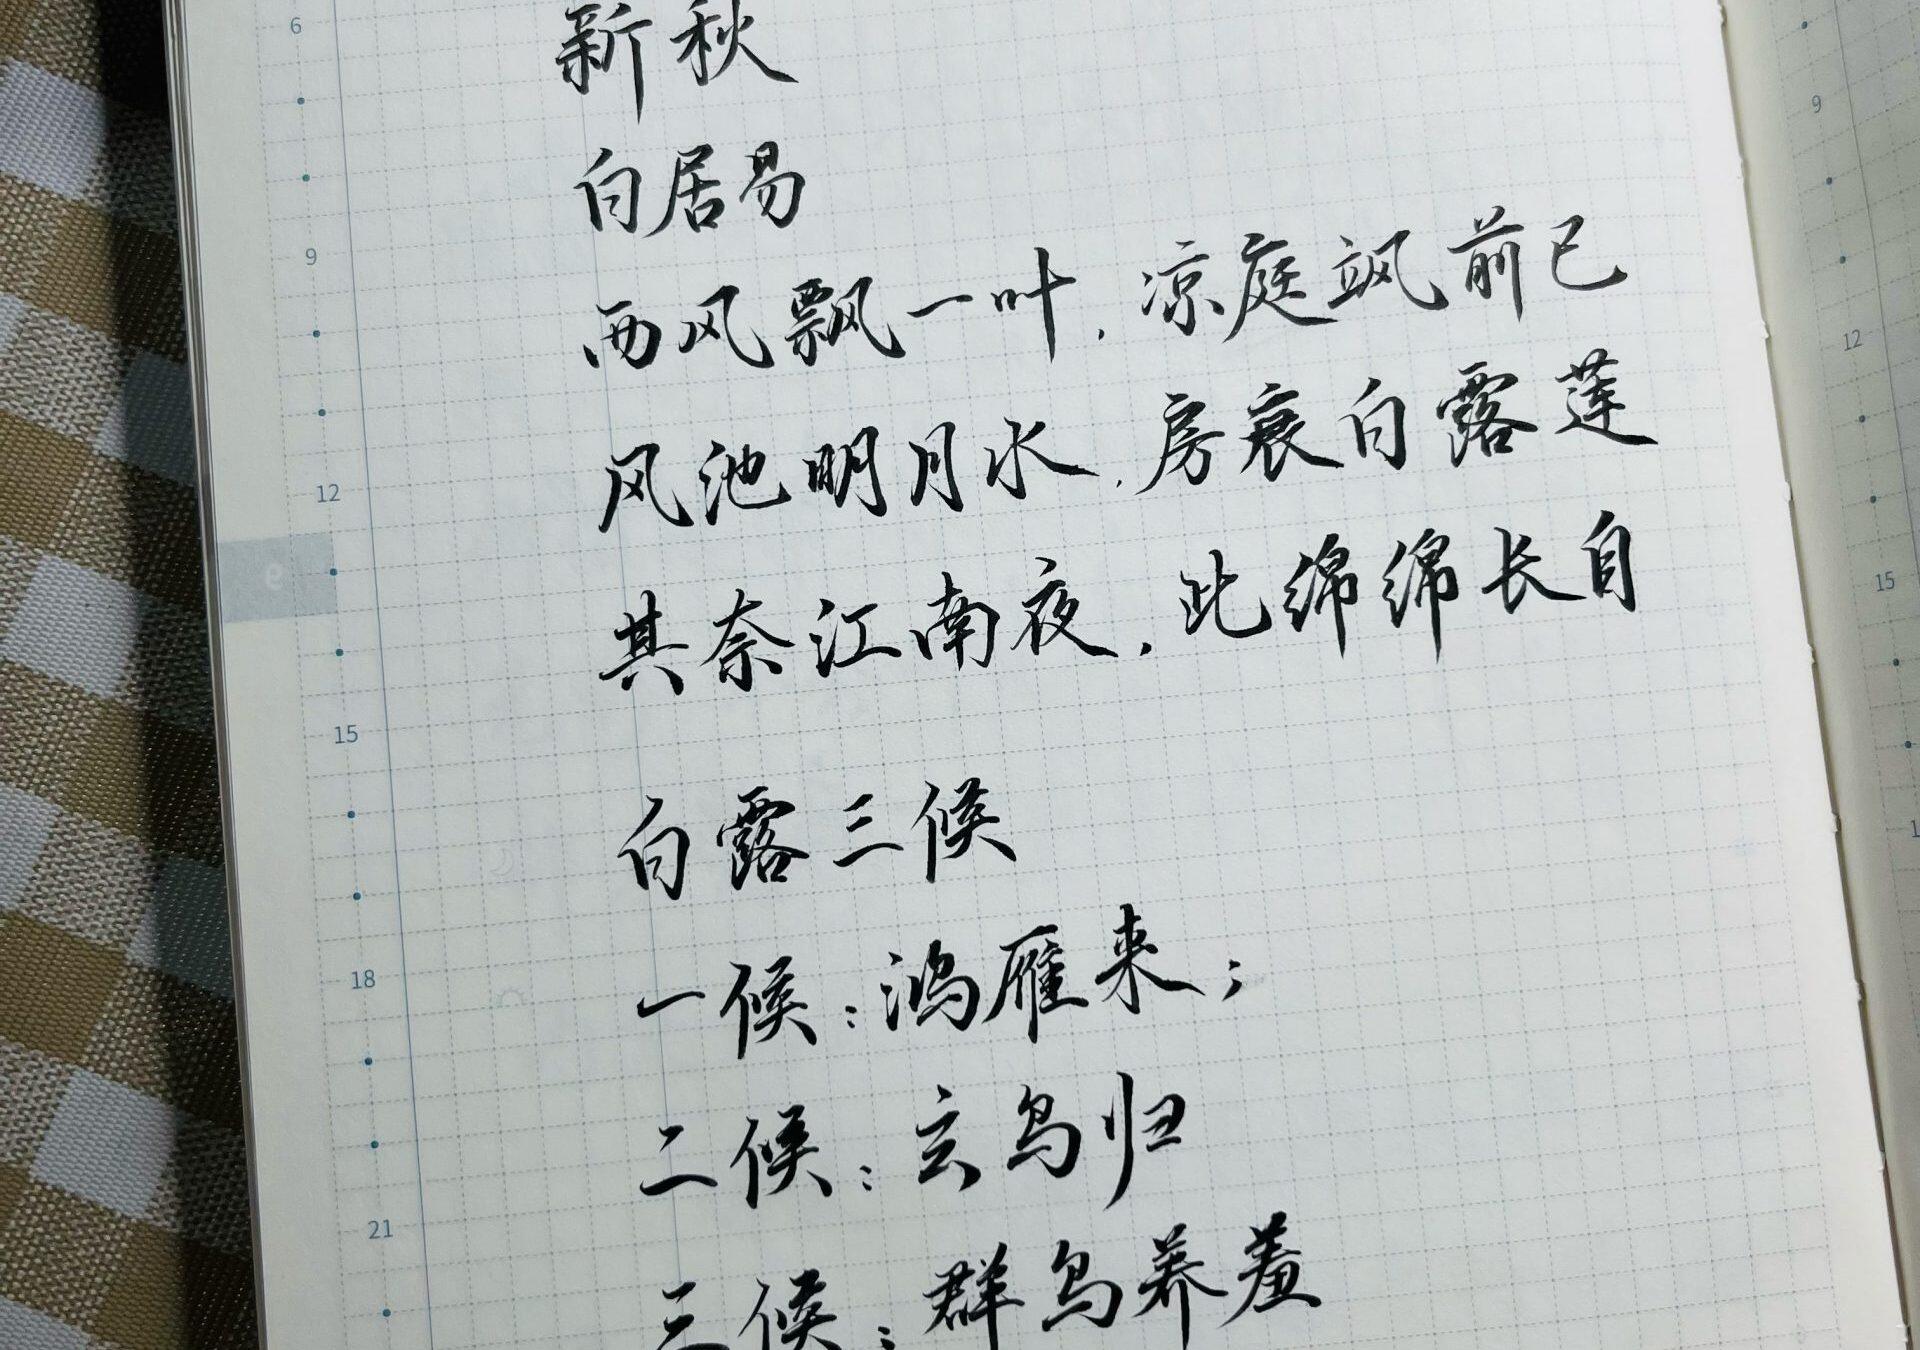 6
新秋
白居易
9
西风飘一叶，凉庭飒前已
风池明月水，房衰白露莲
12
其奈江南夜，此绵绵长自
15
白露三候
18
一候：鸿雁来；
二候：玄鸟归
21
三候：群鸟养羞
9
9
12
15